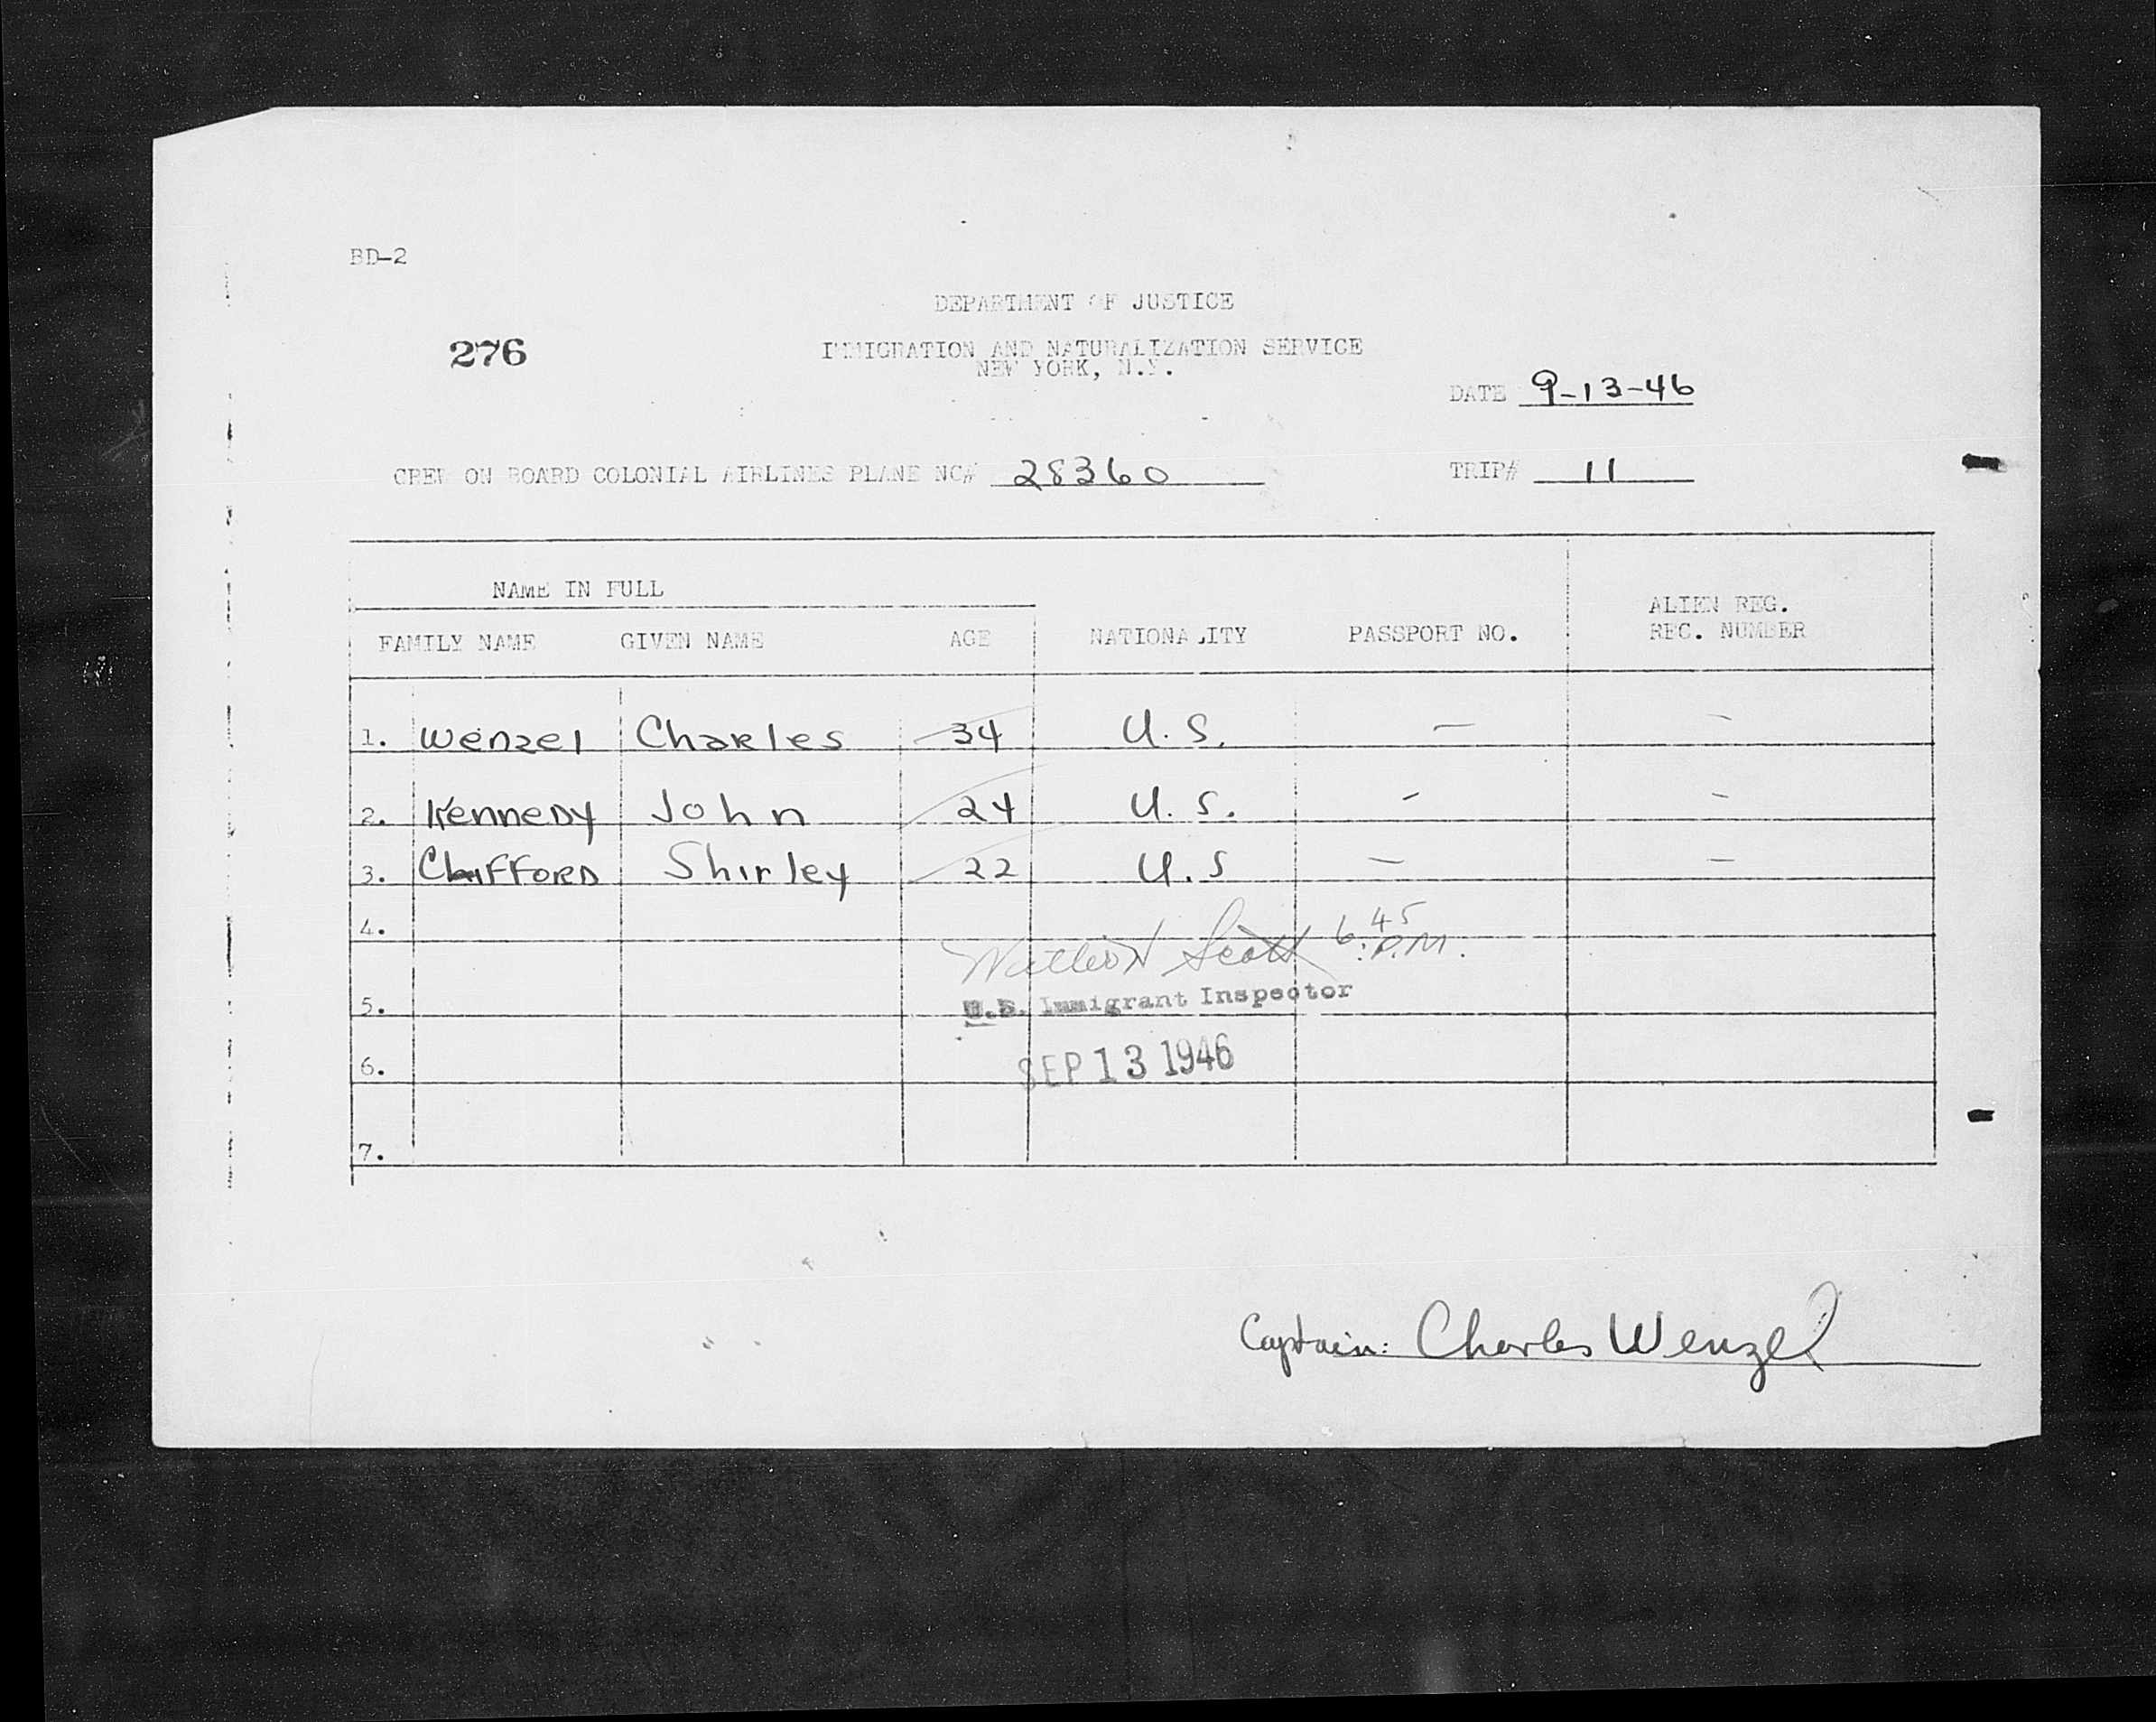 BD-2
DEPARTMENT OF JUSTICE
276
IMMIGRATION AND NATURALIZATION SERVICE
NEW YORK, N.Y.
DATE 9-13-46
CREW ON BOARD COLONIAL AIRLINES PLANE NC# 28360 TRIP# 11
NAME IN FULL
ALIEN REG.
FAMILY NAME GIVEN NAME AGE NATIONALITY PASSPORT NO. REC. NUMBER
1. Wenzel Charles 34 U.S. — -
2. Kennedy John 24 U.S. - -
3. Clifford Shirley 22 U.S — —
4.
Scott 6:45 P.M.
5. U.S. Immigrant Inspector
6. SEP 13 1946
7.
Captain: Charles Wenzel